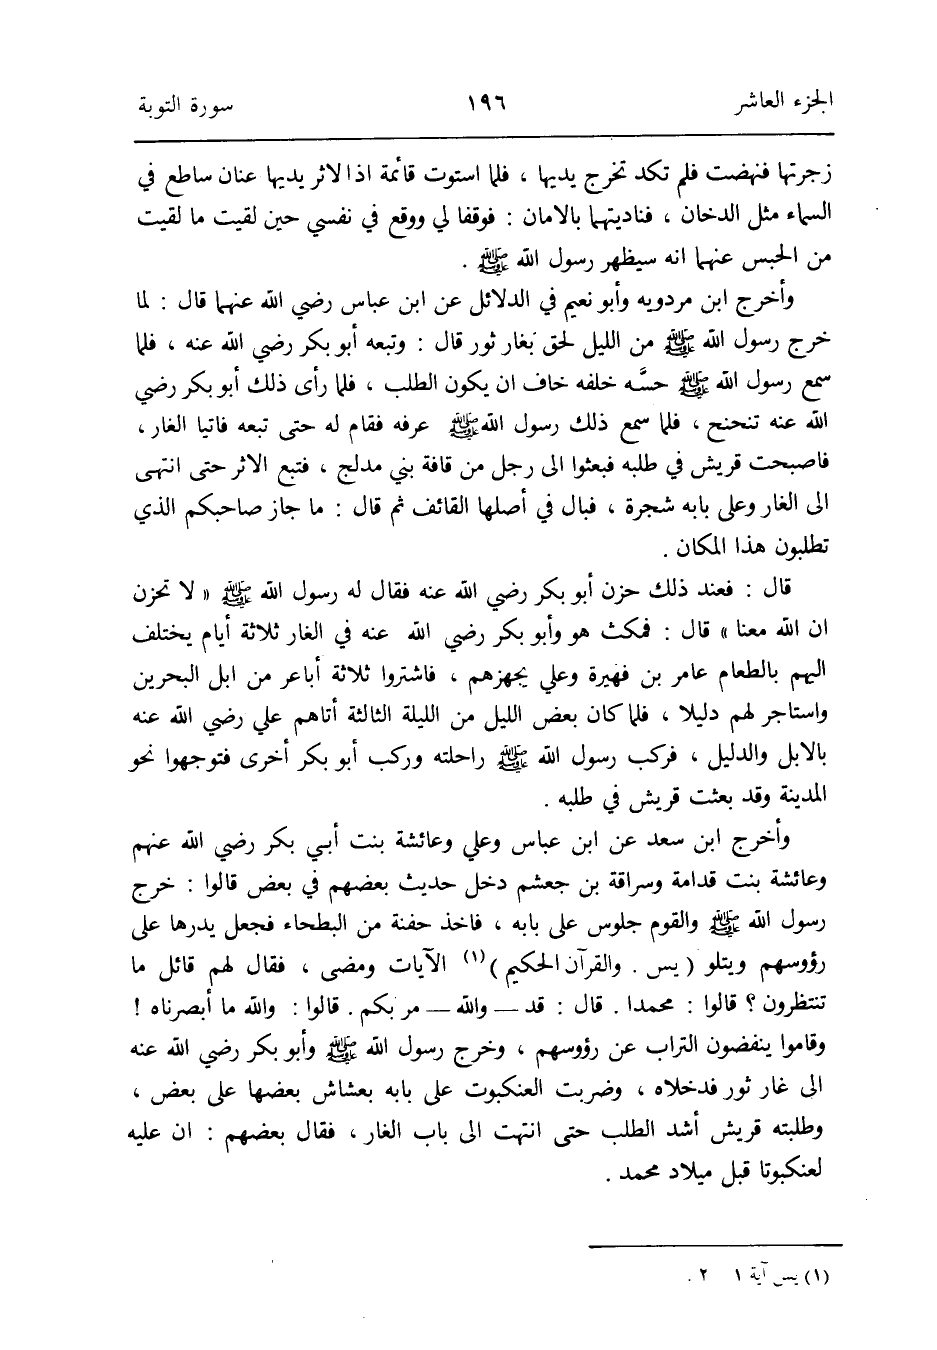 الجزء العاشر ١٩٦ سورة التوبة
زجرتها فنهضت فلم تكد تخرج يديها ، فلما استوت قائمة اذا لاثر يديها عنان ساطع في
السماء مثل الدخان ، فناديتهما بالامان : فوقفا لي ووقع في نفسي حين لقيت ما لقيت
من الحبس عنهما انه سيظهر رسول الله ﷺ .
وأخرج ابن مردويه وأبو نعيم في الدلائل عن ابن عباس رضي الله عنهما قال : لما
خرج رسول الله ﷺ من الليل لحق بغار ثور قال : وتبعه أبو بكر رضي الله عنه ، فلما
سمع رسول الله ﷺ حسَّه خلفه خاف ان يكون الطلب ، فلما رأى ذلك أبو بكر رضي
الله عنه تنحنح ، فلما سمع ذلك رسول الله ﷺ عرفه فقام له حتى تبعه فاتيا الغار ،
فاصبحت قريش في طلبه فبعثوا الى رجل من قافة بني مدلج ، فتبع الاثر حتى انتهى
الى الغار وعلى بابه شجرة ، فبال في أصلها القائف ثم قال : ما جاز صاحبكم الذي
تطلبون هذا المكان .
قال : فعند ذلك حزن أبو بكر رضي الله عنه فقال له رسول الله ﷺ « لا تحزن
ان الله معنا » قال : فمكث هو وأبو بكر رضي الله عنه في الغار ثلاثة أيام يختلف
اليهم بالطعام عامر بن فهيرة وعلي يجهزهم ، فاشتروا ثلاثة أباعر من ابل البحرين
واستاجر لهم دليلا ، فلما كان بعض الليل من الليلة الثالثة أتاهم علي رضي الله عنه
بالابل والدليل ، فركب رسول الله ﷺ راحلته وركب أبو بكر أخرى فتوجهوا نحو
المدينة وقد بعثت قريش في طلبه .
وأخرج ابن سعد عن ابن عباس وعلي وعائشة بنت أبي بكر رضي الله عنهم
وعائشة بنت قدامة وسراقة بن جعشم دخل حديث بعضهم في بعض قالوا : خرج
رسول الله ﷺ والقوم جلوس على بابه ، فاخذ حفنة من البطحاء فجعل يدرها على
رؤوسهم ويتلو ( يس . والقرآن الحكيم )(١) الآيات ومضى ، فقال لهم قائل ما
تنتظرون ؟ قالوا : محمدا . قال : قد — والله — مر بكم . قالوا : والله ما أبصرناه !
وقاموا ينفضون التراب عن رؤوسهم ، وخرج رسول الله ﷺ وأبو بكر رضي الله عنه
الى غار ثور فدخلاه ، وضربت العنكبوت على بابه بعشاش بعضها على بعض ،
وطلبته قريش أشد الطلب حتى انتهت الى باب الغار ، فقال بعضهم : ان عليه
لعنكبوتا قبل ميلاد محمد .
(١) يس آية ١ ٢ .